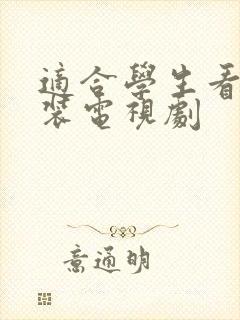 適合學生看
裝電視劇
意通明